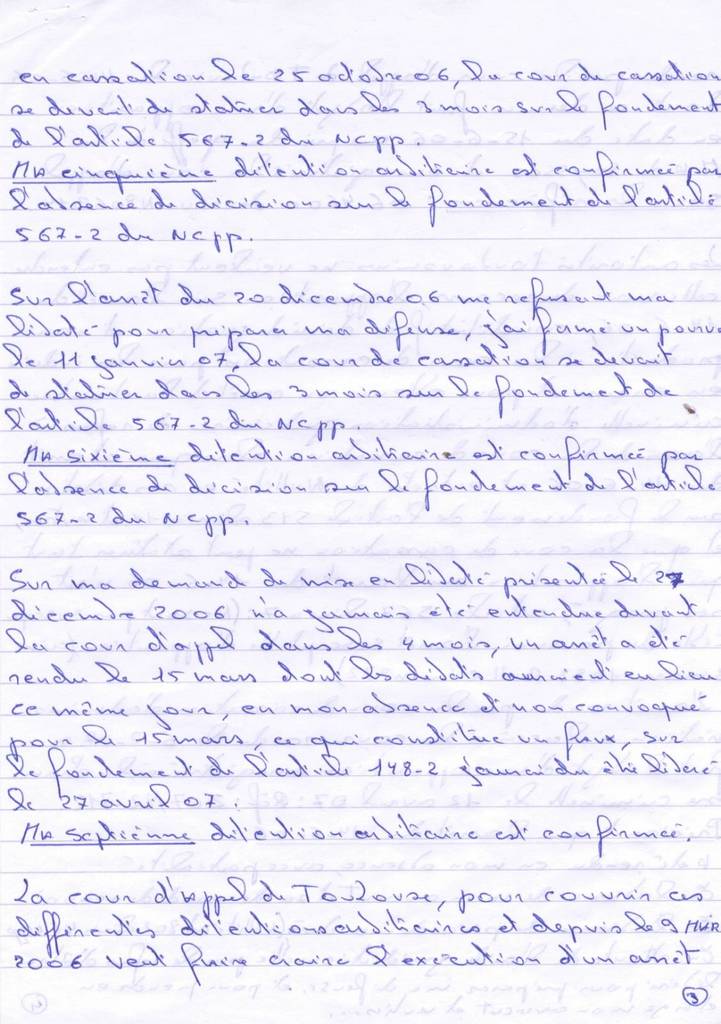 en cassation le 25 octobre 06, la cour de cassation
se devait de statuer dans les 3 mois sur le fondement
de l'article 567-2 du NCPP.
MA cinquième détention arbitraire est confirmée par
l'absence de décision sur le fondement de l'article
567-2 du NCPP.
Sur l'arrêt du 20 décembre 06 me refusant ma
liberté pour préparer ma défense, j'ai formé un pourvoi
le 11 janvier 07, la cour de cassation se devait
de statuer dans les 3 mois sur le fondement de
l'article 567-2 du NCPP.
MA sixième détention arbitraire est confirmée par
l'absence de décision sur le fondement de l'article
567-2 du NCPP.
Sur ma demand de mise en liberté présentée le 27
décembre 2006 n'a jamais été entendue devant
la cour d'appel dans les 4 mois, un arrêt a été
rendu le 15 mars dont les débats auraient eu lieu
ce même jour, en mon absence et non convoqué
pour le 15 mars, ce qui constitue un faux, sur
le fondement de l'article 148-2 j'aurai du être libéré
le 27 avril 07.
MA septième détention arbitraire est confirmée.
La cour d'appel de Toulouse, pour couvrir ces
différentes détentions arbitraires et depuis le 9 MAR
2006 veut faire croire l'exécution d'un arrêt
3